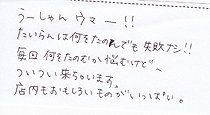 うーしゃん ウマー!!
たいらんは何をたのんでも失敗ナシ!!
毎回 何をたのむか悩むけど〜
ついつい来ちゃいます。
店内もおもしろいものがいっぱい。